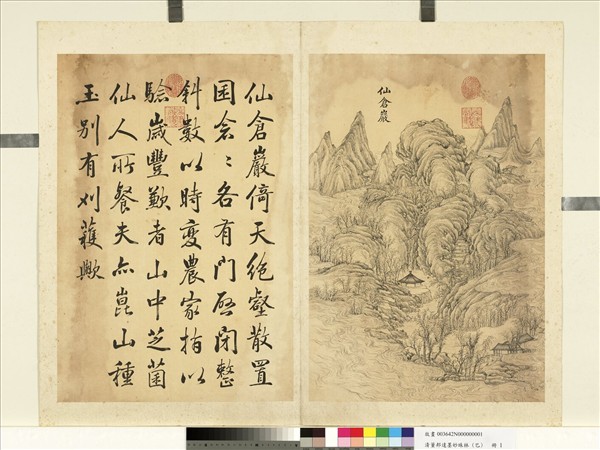 仙倉巖
仙倉巖倚天絶壑散置
囷倉〻各有門啓閉整
斜數以時變農家指以
驗歲豐歉者山中芝菌
仙人所餐夫亦崑山種
玉别有刈穫歟
故畫 003642N000000001
清董邦達墨妙珠林（巳） 冊 1